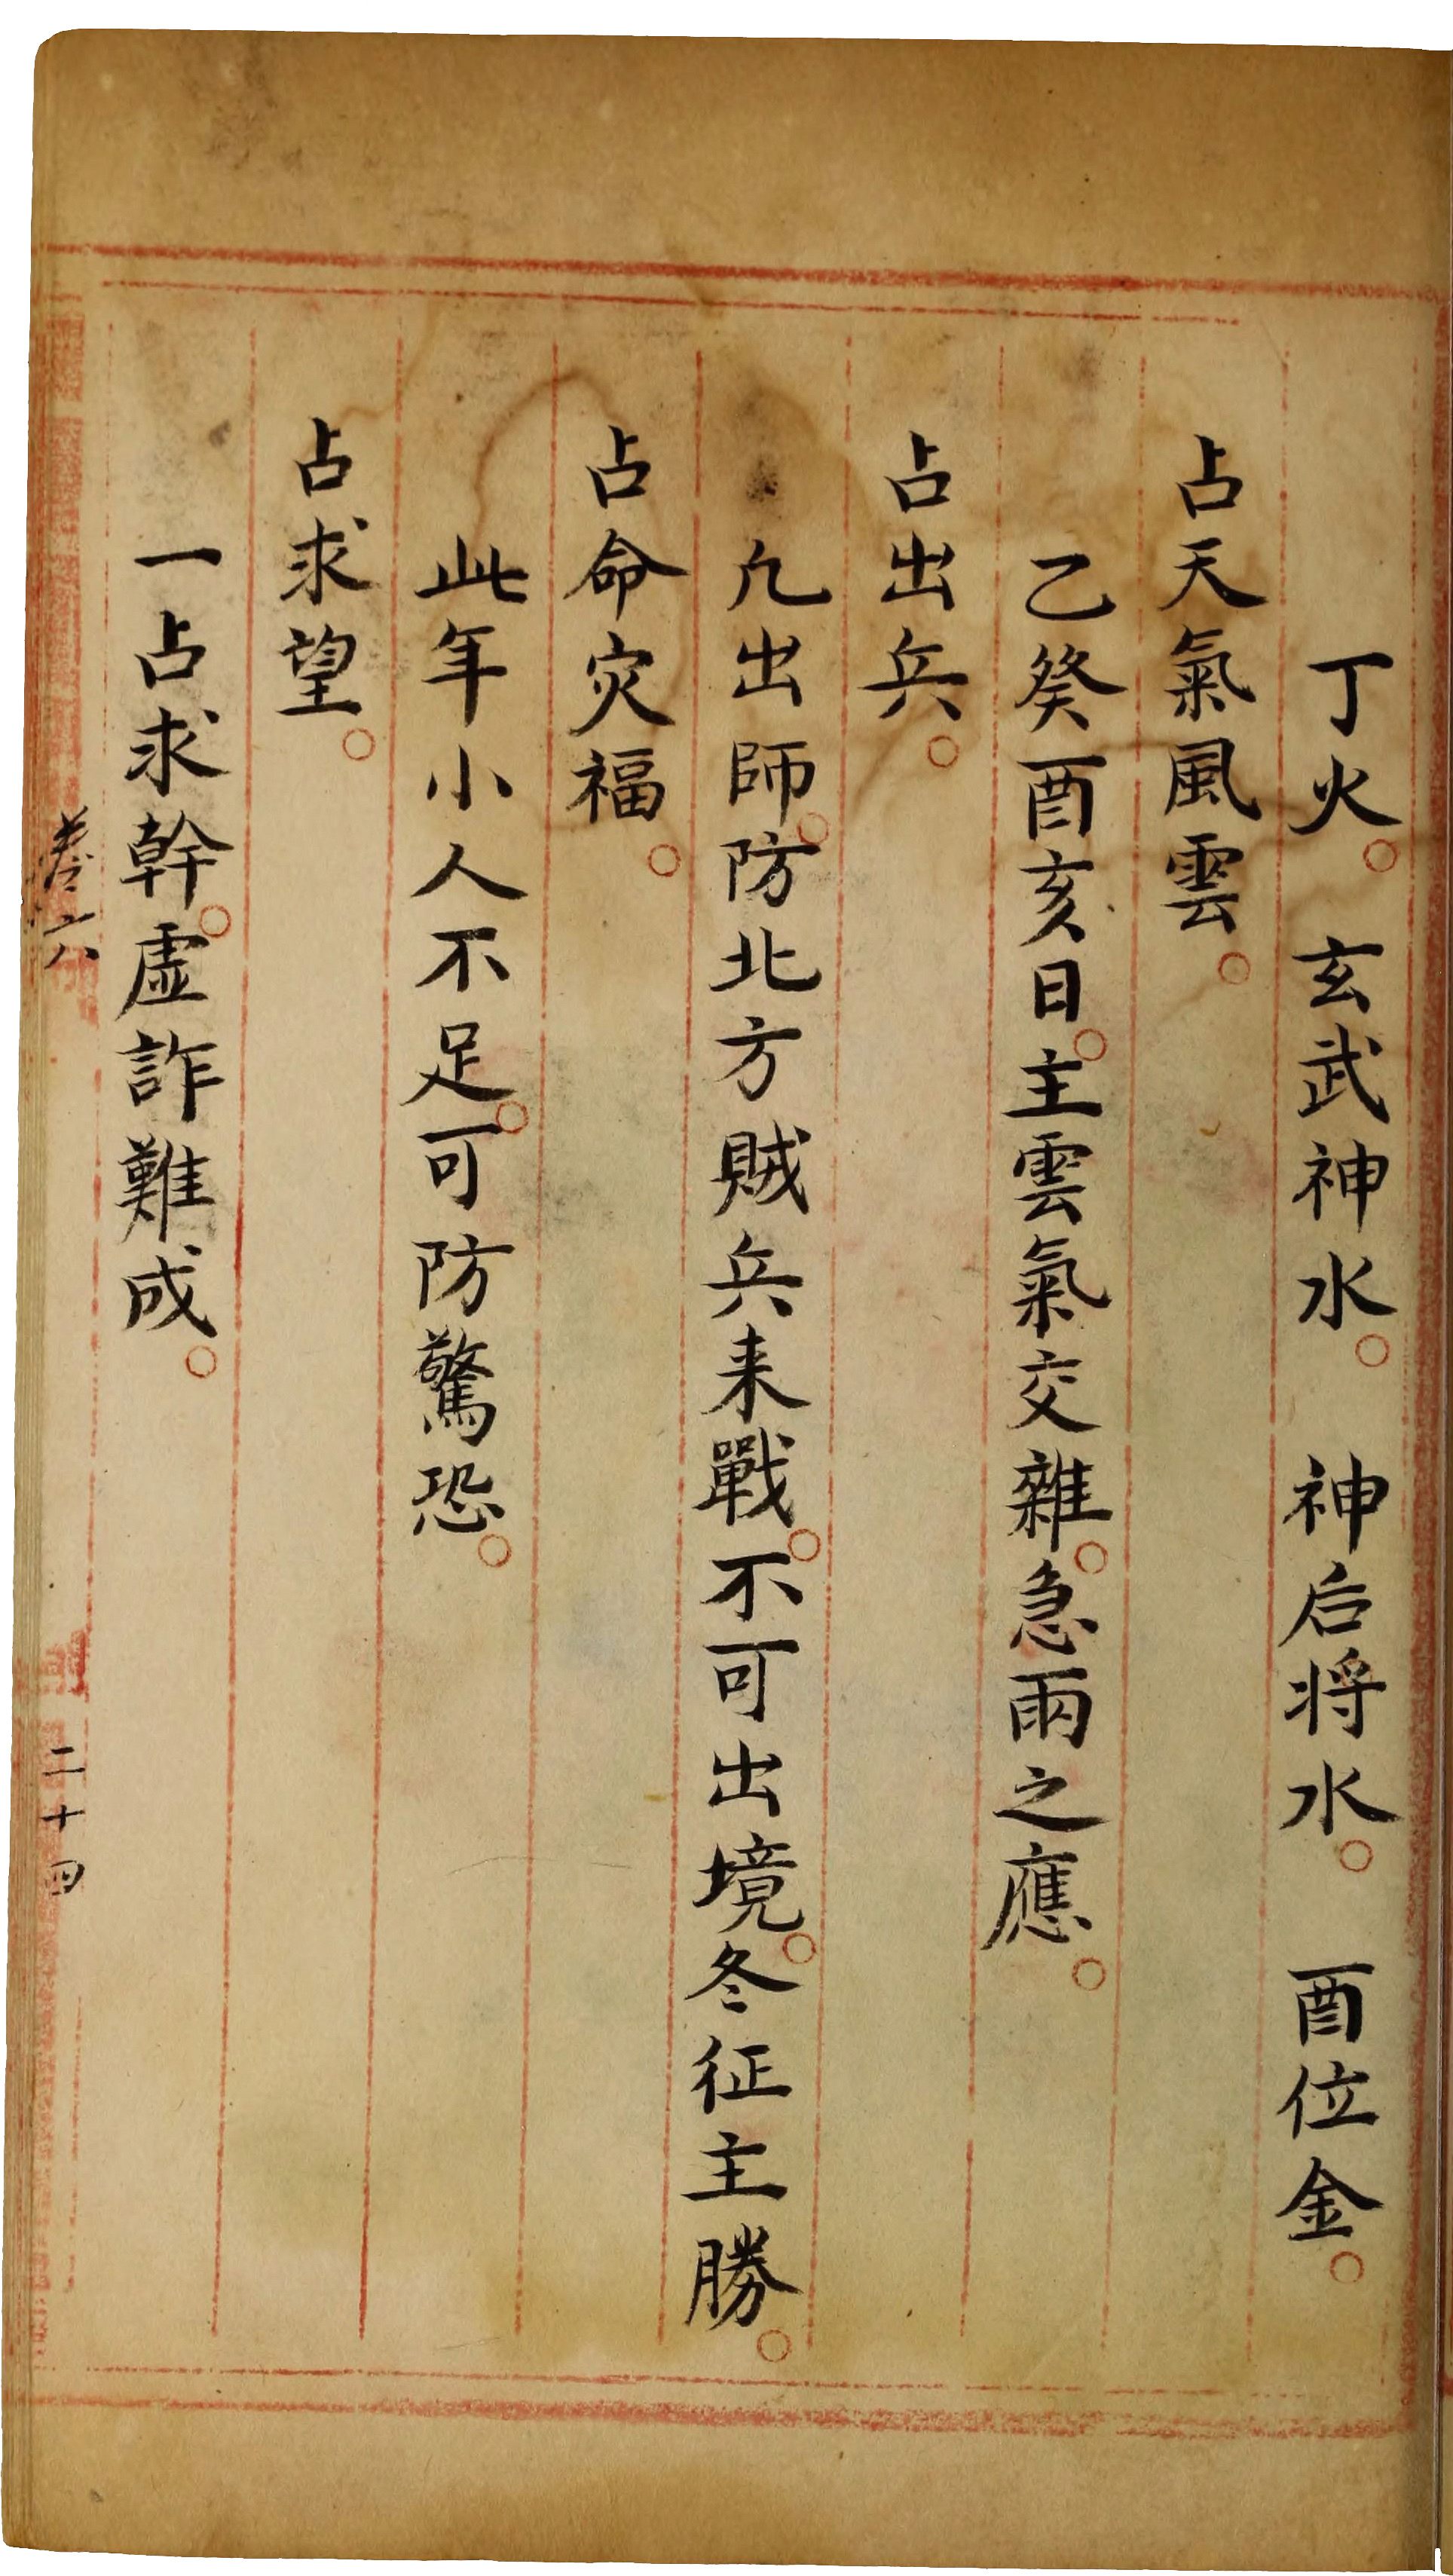 丁火。玄武神水。神后将水。酉位金。
占天氣風雲。
乙癸酉亥日。主雲氣交雜。急雨之應。
占出兵。
凡出師。防北方賊兵来戰。不可出境。冬征主勝。
占命灾福。
此年小人不足。可防驚恐。
占求望。
一占求幹。虛詐難成。
卷六
二十四